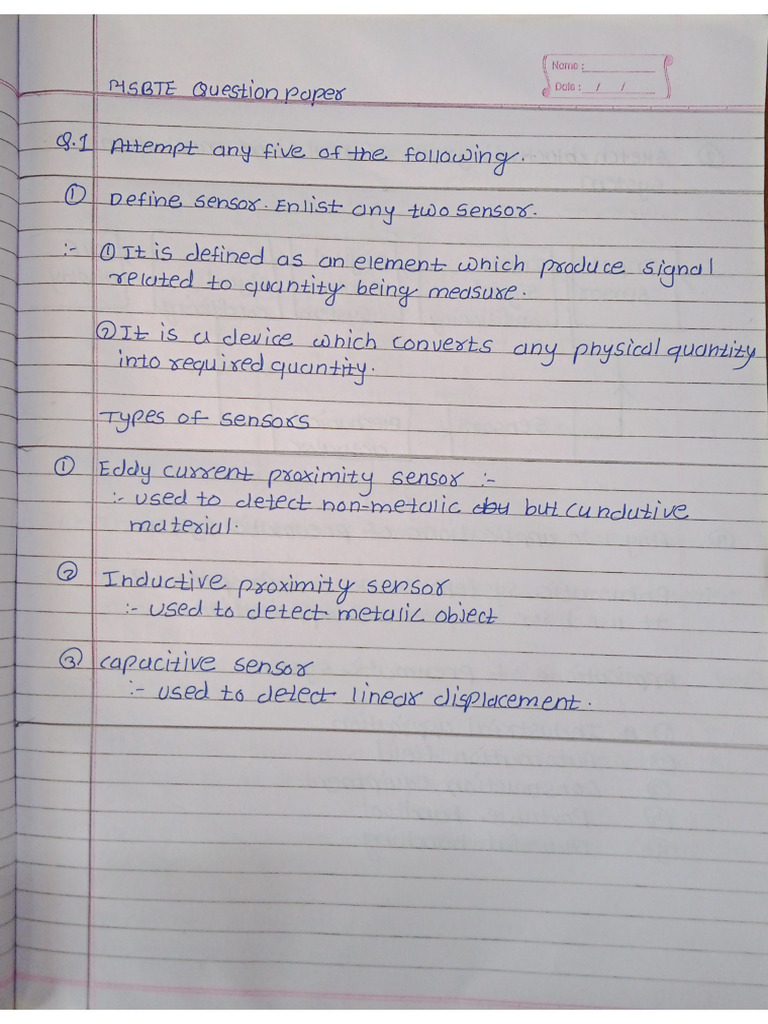 Name :
Date : / /
MSBTE Question paper
Q.1 Attempt any five of the following.
① Define sensor. Enlist any two sensor.
:- ① It is defined as an element which produce signal
related to quantity being measure.
② It is a device which converts any physical quantity
into required quantity.
Types of sensors
① Eddy current proximity sensor :-
:- used to detect non-metalic but cundutive
material.
② Inductive proximity sensor
:- used to detect metalic object
③ capacitive sensor
:- used to detect linear displacement.